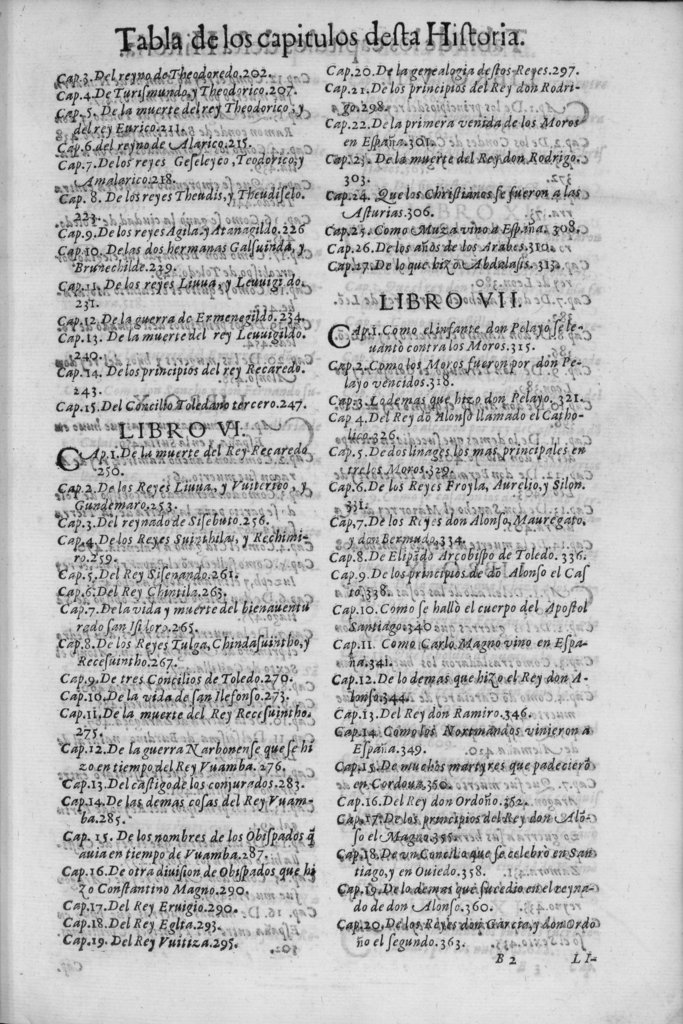 Tabla de los capitulos desta Historia.
Cap.3.Del reyno de Theodoredo.202.
Cap.4.De Turismundo, y Theodorico.207.
Cap.5. De la muerte del rey Theodorico, y
del rey Eurico.211.
Cap.6.del reyno de Alarico.215.
Cap.7.De los reyes Geseleyco, Teodorico, y
Amalarico.218.
Cap. 8. De los reyes Theudis, y Theudiselo.
223.
Cap.9.De los reyes Agila, y Atanagildo.226
Cap.10. De las dos hermanas Galsuinda, y
Brunechilde.229.
Cap.11. De los reyes Liuua, y Leuuigildo.
231.
Cap.12.De la guerra de Ermenegildo.234.
Cap.13. De la muerte del rey Leuuigildo.
240.
Cap.14. De los principios del rey Recaredo.
243.
Cap.15.Del Concilio Toledano tercero.247.
LIBRO VI.
CAp.1.De la muerte del Rey Recaredo
250.
Cap.2.De los Reyes Liuua, y Vuiterico, y
Gundemaro.253.
Cap.3.Del reynado de Sisebuto.256.
Cap.4.De los Reyes Suinthila, y Rechimi-
ro.259.
Cap.5.Del Rey Sisenando.261.
Cap.6.Del Rey Chintila.263.
Cap.7.De la vida y muerte del bienauentu
rado san Isidoro.265.
Cap.8.De los Reyes Tulga, Chindasuintho, y
Recesuintho.267.
Cap.9.De tres Concilios de Toledo.270.
Cap.10.De la vida de san Ilefonso.273.
Cap.11.De la muerte del Rey Recesuintho.
275.
Cap.12.De la guerra Narbonense que se hi
zo en tiempo del Rey Vuamba.276.
Cap.13.Del castigo de los conjurados.283.
Cap.14.De las demas cosas del Rey Vuam-
ba.285.
Cap.15. De los nombres de los Obispados q̃
auia en tiempo de Vuamba.287.
Cap.16.De otra diuision de Obispados que hi
zo Constantino Magno.290.
Cap.17.Del Rey Eruigio.290.
Cap.18.Del Rey Egita.293.
Cap.19. Del Rey Vuitiza.295.
Cap.20.De la genealogia destos Reyes.297.
Cap.21.De los principios del Rey don Rodri-
go.298.
Cap.22.De la primera venida de los Moros
en España.301.
Cap.23. De la muerte del Rey don Rodrigo.
303.
Cap.24. Que los Christianos se fueron a las
Asturias.306.
Cap.25. Como Muza vino a España. 308.
Cap.26.De los años de los Arabes.310.
Cap.27.De lo que hizo Abdalasis.313.
LIBRO VII.
CAp.1.Como el infante don Pelayo se le-
uantó contra los Moros.315.
Cap.2.Como los Moros fueron por don Pe-
layo vencidos.318.
Cap.3.Lo demas que hizo don Pelayo. 321.
Cap 4.Del Rey dõ Alonso llamado el Catho-
lico.326.
Cap.5.De dos linages los mas principales en
tre los Moros.329.
Cap.6.De los Reyes Froyla, Aurelio, y Silon.
331.
Cap.7.De los Reyes don Alonso, Mauregato,
y don Bermudo.334.
Cap.8.De Elipãdo Arcobispo de Toledo.336.
Cap.9.De los principios de dõ Alonso el Cas
to.338.
Cap.10.Como se halló el cuerpo del Apostol
Santiago.340
Cap.11. Como Carlo Magno vino en Espa-
ña.341.
Cap.12.De lo demas que hizo el Rey don A-
lonso.344.
Cap.13.Del Rey don Ramiro.346.
Cap.14.Como los Nortmandos vinieron a
España.349.
Cap.15.De muchos martyres que padeciero
en Cordoua.350.
Cap.16.Del Rey don Ordoño.352.
Cap.17.De los principios del Rey don Alõ-
so el Magno.355.
Cap.18.De un Concilio que se celebro en San
tiago, y en Ouiedo.358.
Cap.19.De lo demas que sucedio en el reyna-
do de don Alonso.360.
Cap.20.De los Reyes don Garcia, y don Ordo
ño el segundo.363.
B 2 LI-